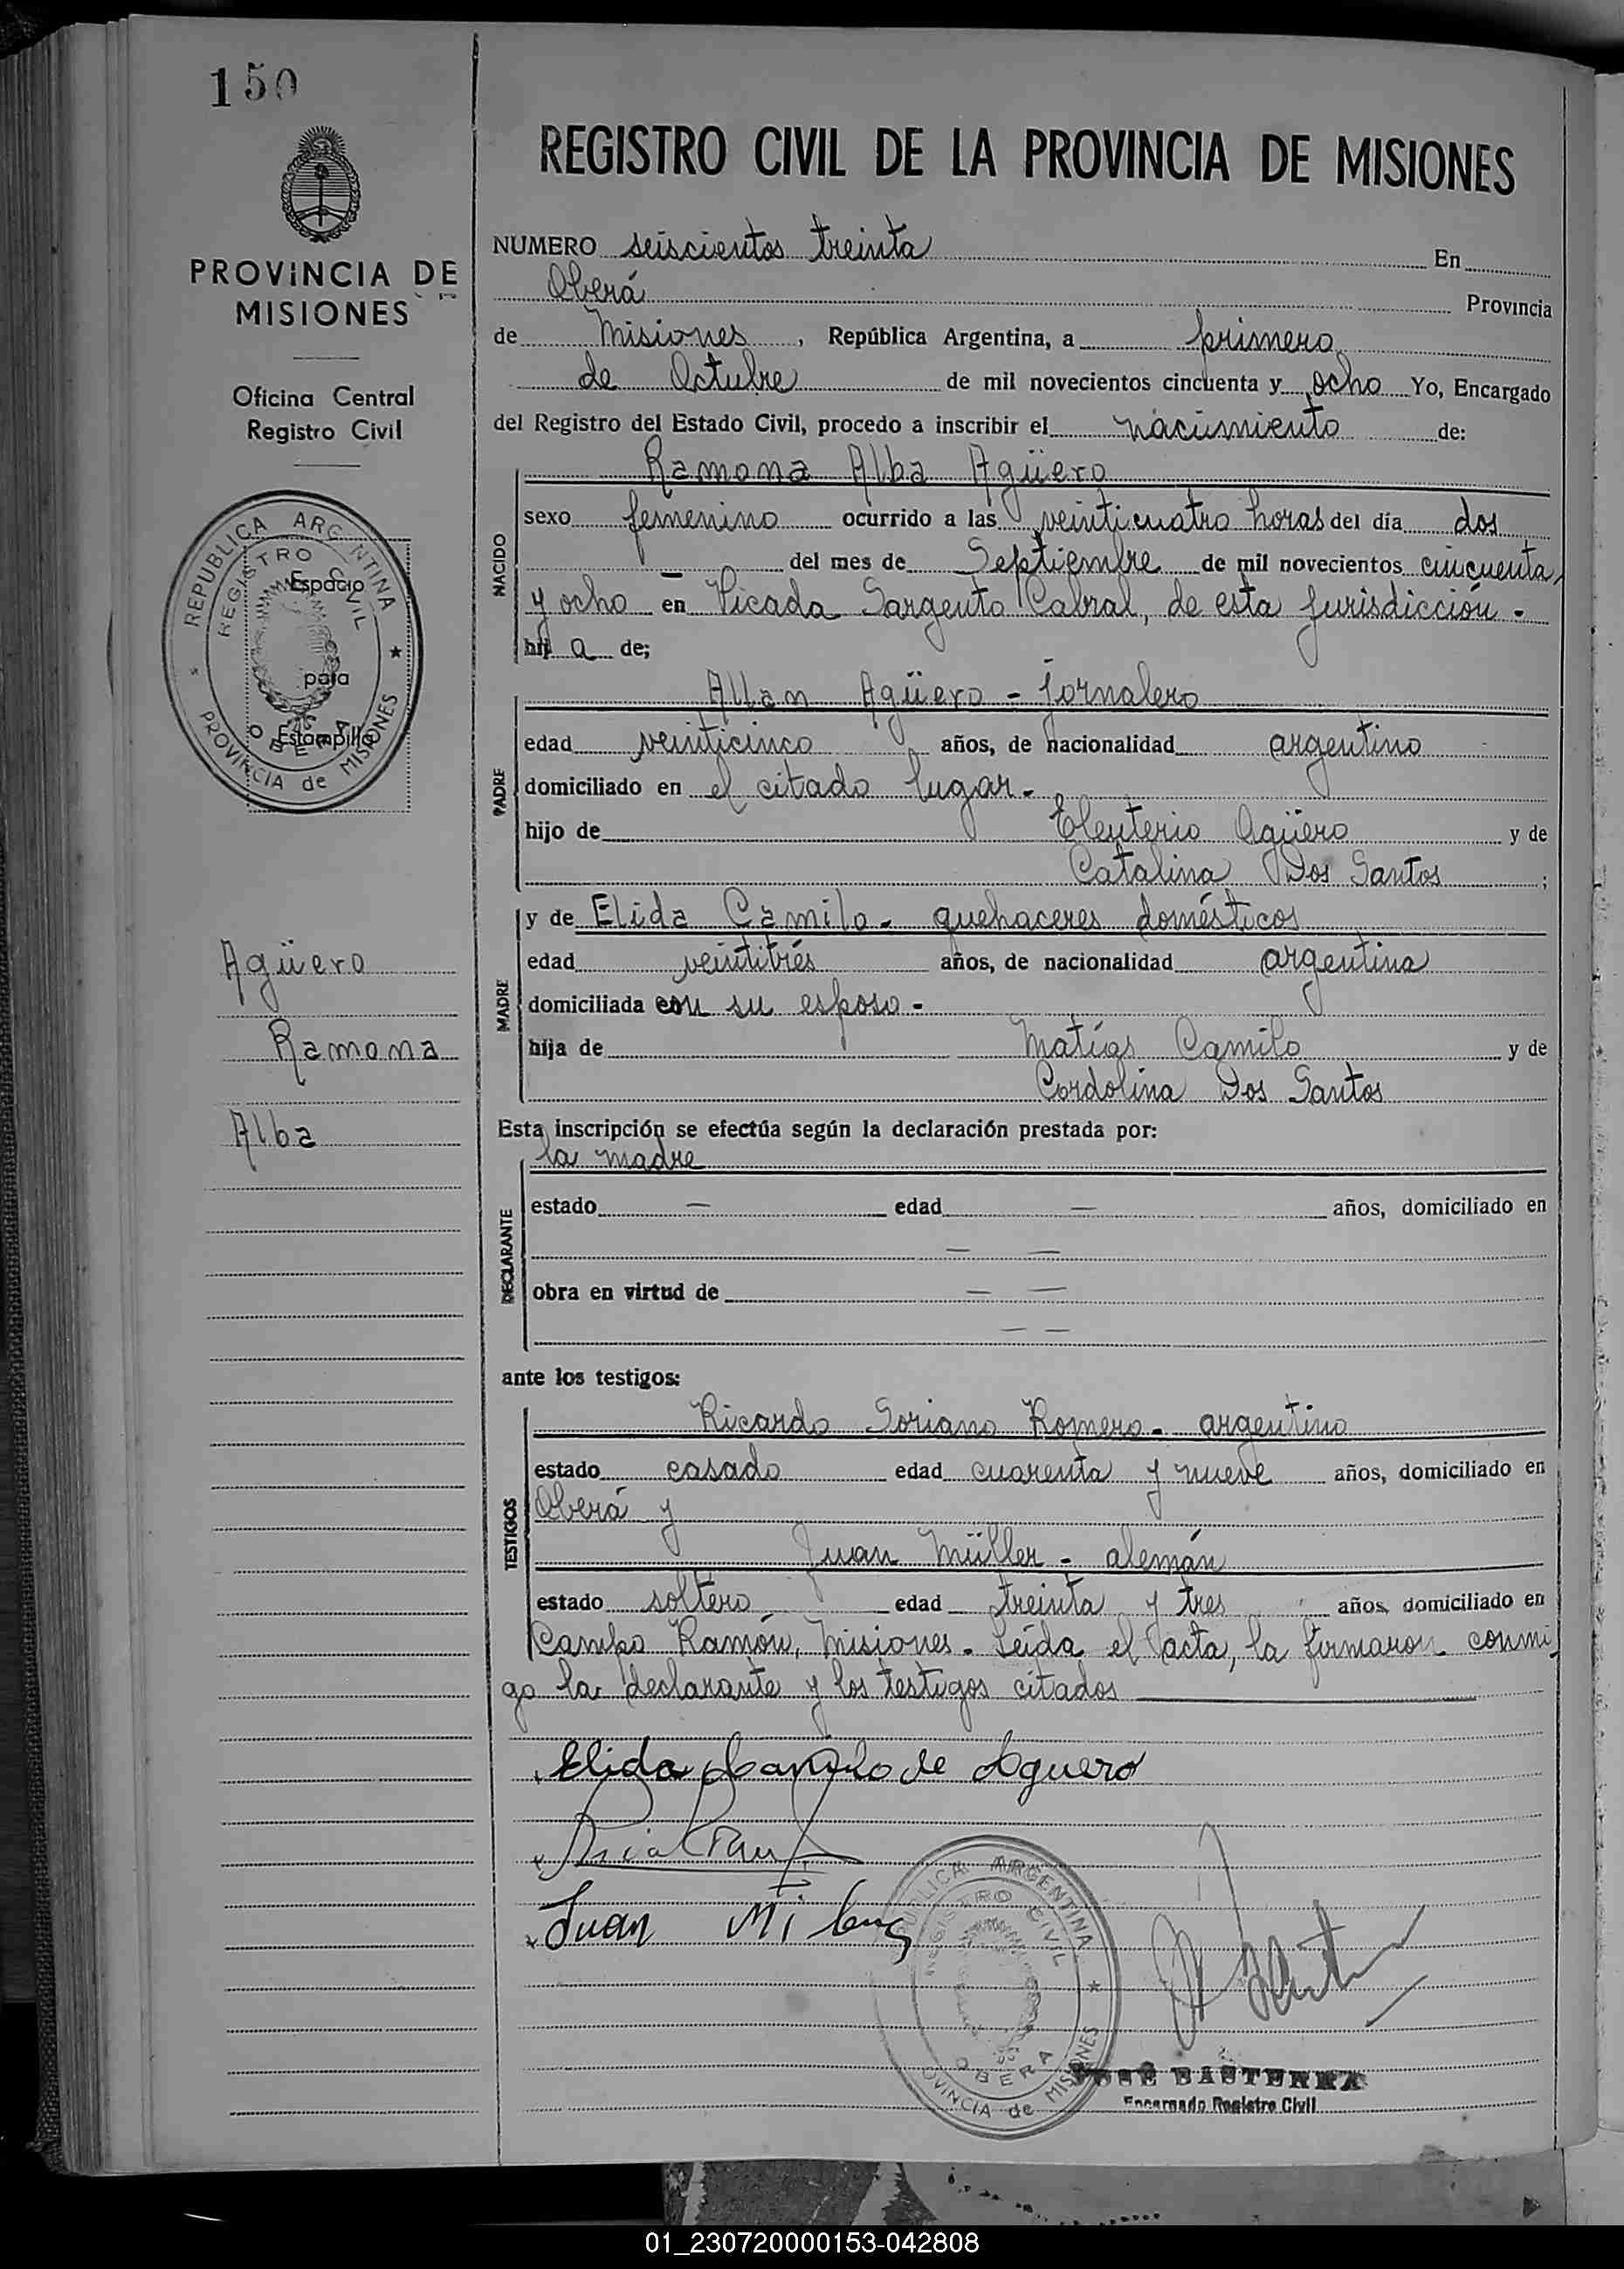 150
PROVINCIA DE
MISIONES
Oficina Central
Registro Civil
REPUBLICA ARGENTINA
REGISTRO CIVIL
Espacio
para
Estampilla
OBERA
PROVINCIA de MISIONES
Agüero
Ramona
Alba
REGISTRO CIVIL DE LA PROVINCIA DE MISIONES
NUMERO seiscientos treinta En
Oberá Provincia
de Misiones, República Argentina, a primero
de Octubre de mil novecientos cincuenta y ocho Yo, Encargado
del Registro del Estado Civil, procedo a inscribir el nacimiento de:
NACIDO
Ramona Alba Agüero
sexo femenino ocurrido a las veinticuatro horas del día dos
del mes de Septiembre de mil novecientos cincuenta
y ocho en Picada Sargento Cabral, de esta jurisdicción.-
hij a de;
PADRE
Allan Agüero - jornalero
edad veinticinco años, de nacionalidad argentino
domiciliado en el citado lugar.-
hijo de Eleuterio Agüero y de
Catalina Dos Santos ;
MADRE
y de Elida Camilo - quehaceres domésticos
edad veintitrés años, de nacionalidad argentina
domiciliada con su esposo -
hija de Matías Camilo y de
Cordolina Dos Santos
Esta inscripción se efectúa según la declaración prestada por:
DECLARANTE
la madre
estado — edad — años, domiciliado en
— —
obra en virtud de — —
— —
ante los testigos:
TESTIGOS
Ricardo Soriano Romero - argentino
estado casado edad cuarenta y nueve años, domiciliado en
Oberá y
Juan Müller - alemán
estado soltero edad treinta y tres años, domiciliado en
Campo Ramón, Misiones. Leída el acta, la firmaron conmi
go la declarante y los testigos citados
Elida Camilo de Aguero
Juan
REPUBLICA ARGENTINA
REGISTRO CIVIL
OBERA
PROVINCIA de MISIONES
JOSÉ BASTERRA
Encargado Registro Civil
01_230720000153-042808